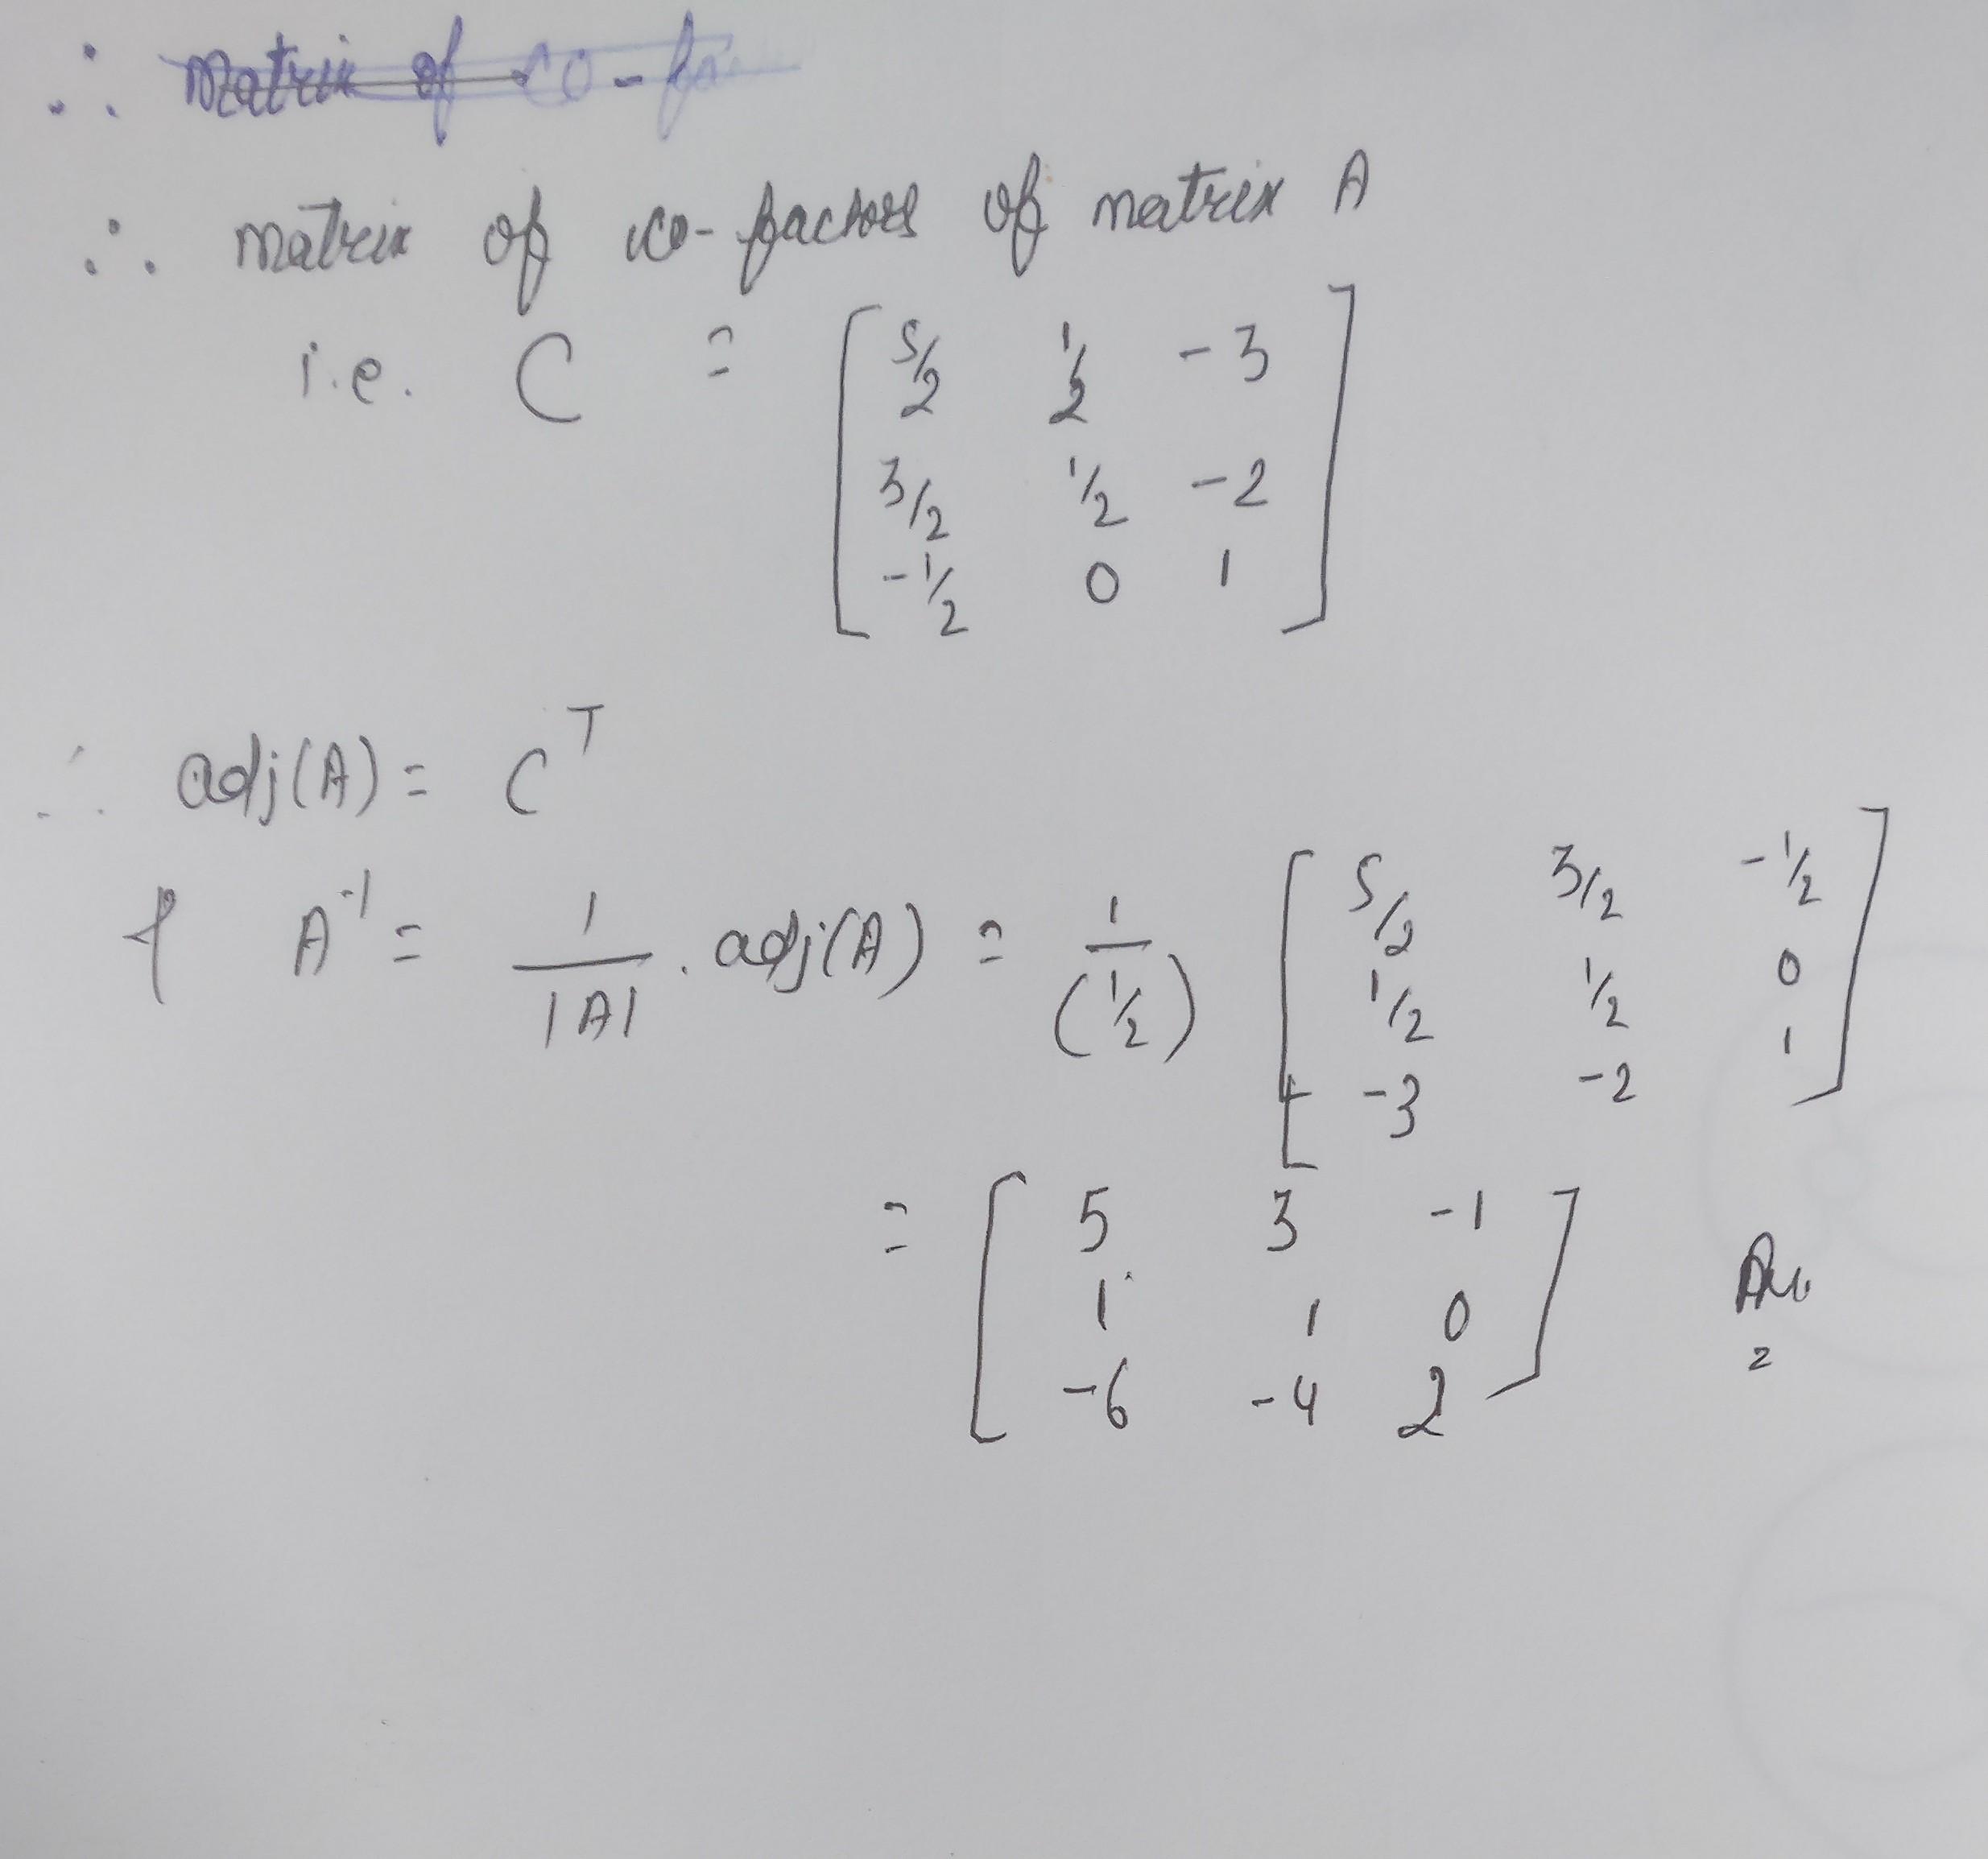 ∴ Matrix of co-fa
∴ matrix of co-factors of matrix A
i.e. C = [ 5/2 1/2 -3
3/2 1/2 -2
-1/2 0 1 ]
∴ adj(A) = C^T
& A^-1 = 1/|A| . adj(A) = 1/(1/2) [ 5/2 3/2 -1/2
1/2 1/2 0
-3 -2 1 ]
= [ 5 3 -1
1 1 0
-6 -4 2 ] Ans